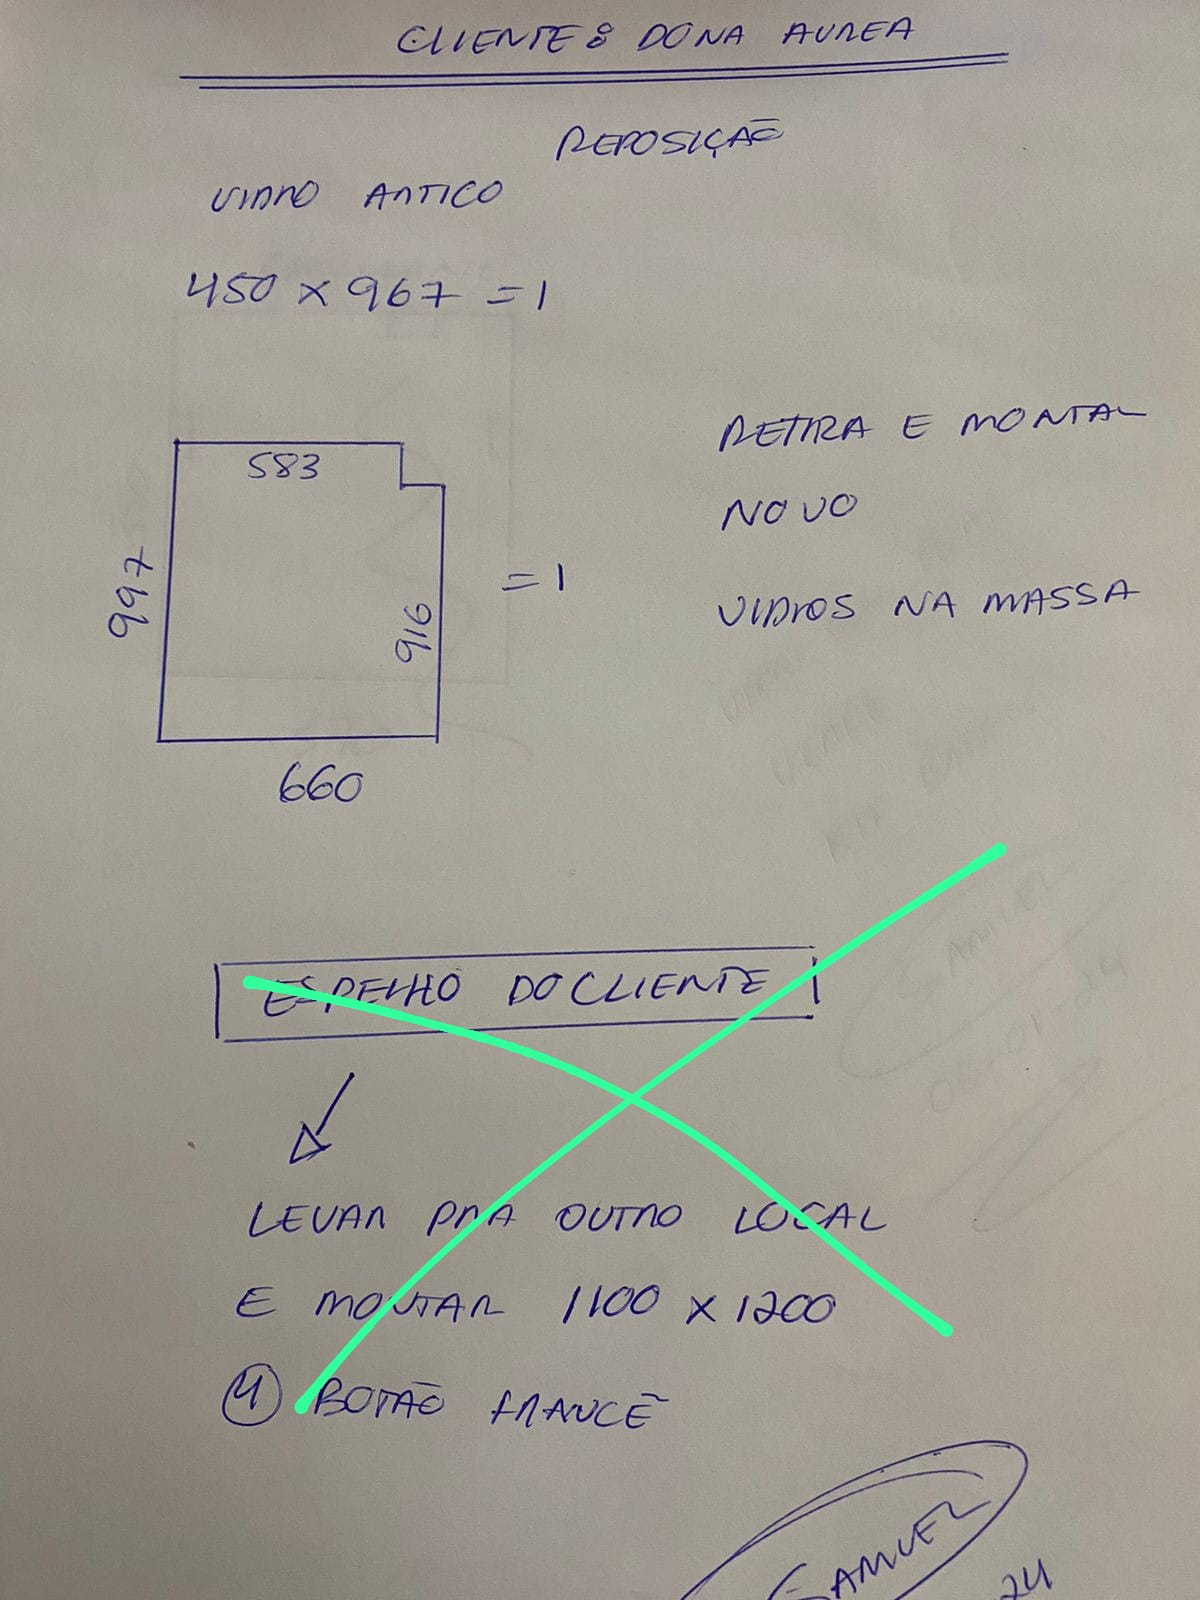 CLIENTE: DONA AUREA
REPOSIÇÃO
VIDRO ARTICO
450 X 967 = 1
583
997
916
= 1
660
RETIRA E MONTAR
NOVO
VIDROS NA MASSA
ESPELHO DO CLIENTE
LEVAR PRA OUTRO LOCAL
E MONTAR 1100 X 1200
4 BOTÃO FRANCÊ
SAMUEL
24